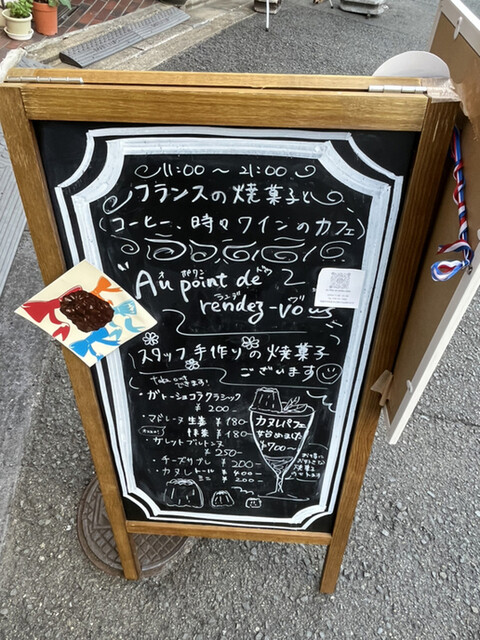 11:00 ～ 21:00
フランスの焼菓子と
コーヒー、時々ワインのカフェ
"Au point de
rendez-vous"
スタッフ手作りの焼菓子
ございます
take out
できます!
・ガトーショコラクラシック
¥200-
・マドレーヌ 生姜 ¥180-
抹茶 ¥180-
・ガレットブルトンヌ
¥250-
・チーズサブレ ¥200-
・カヌレ トール ¥400-
ミニ ¥200-
カヌレパフェ
始めました
¥700～